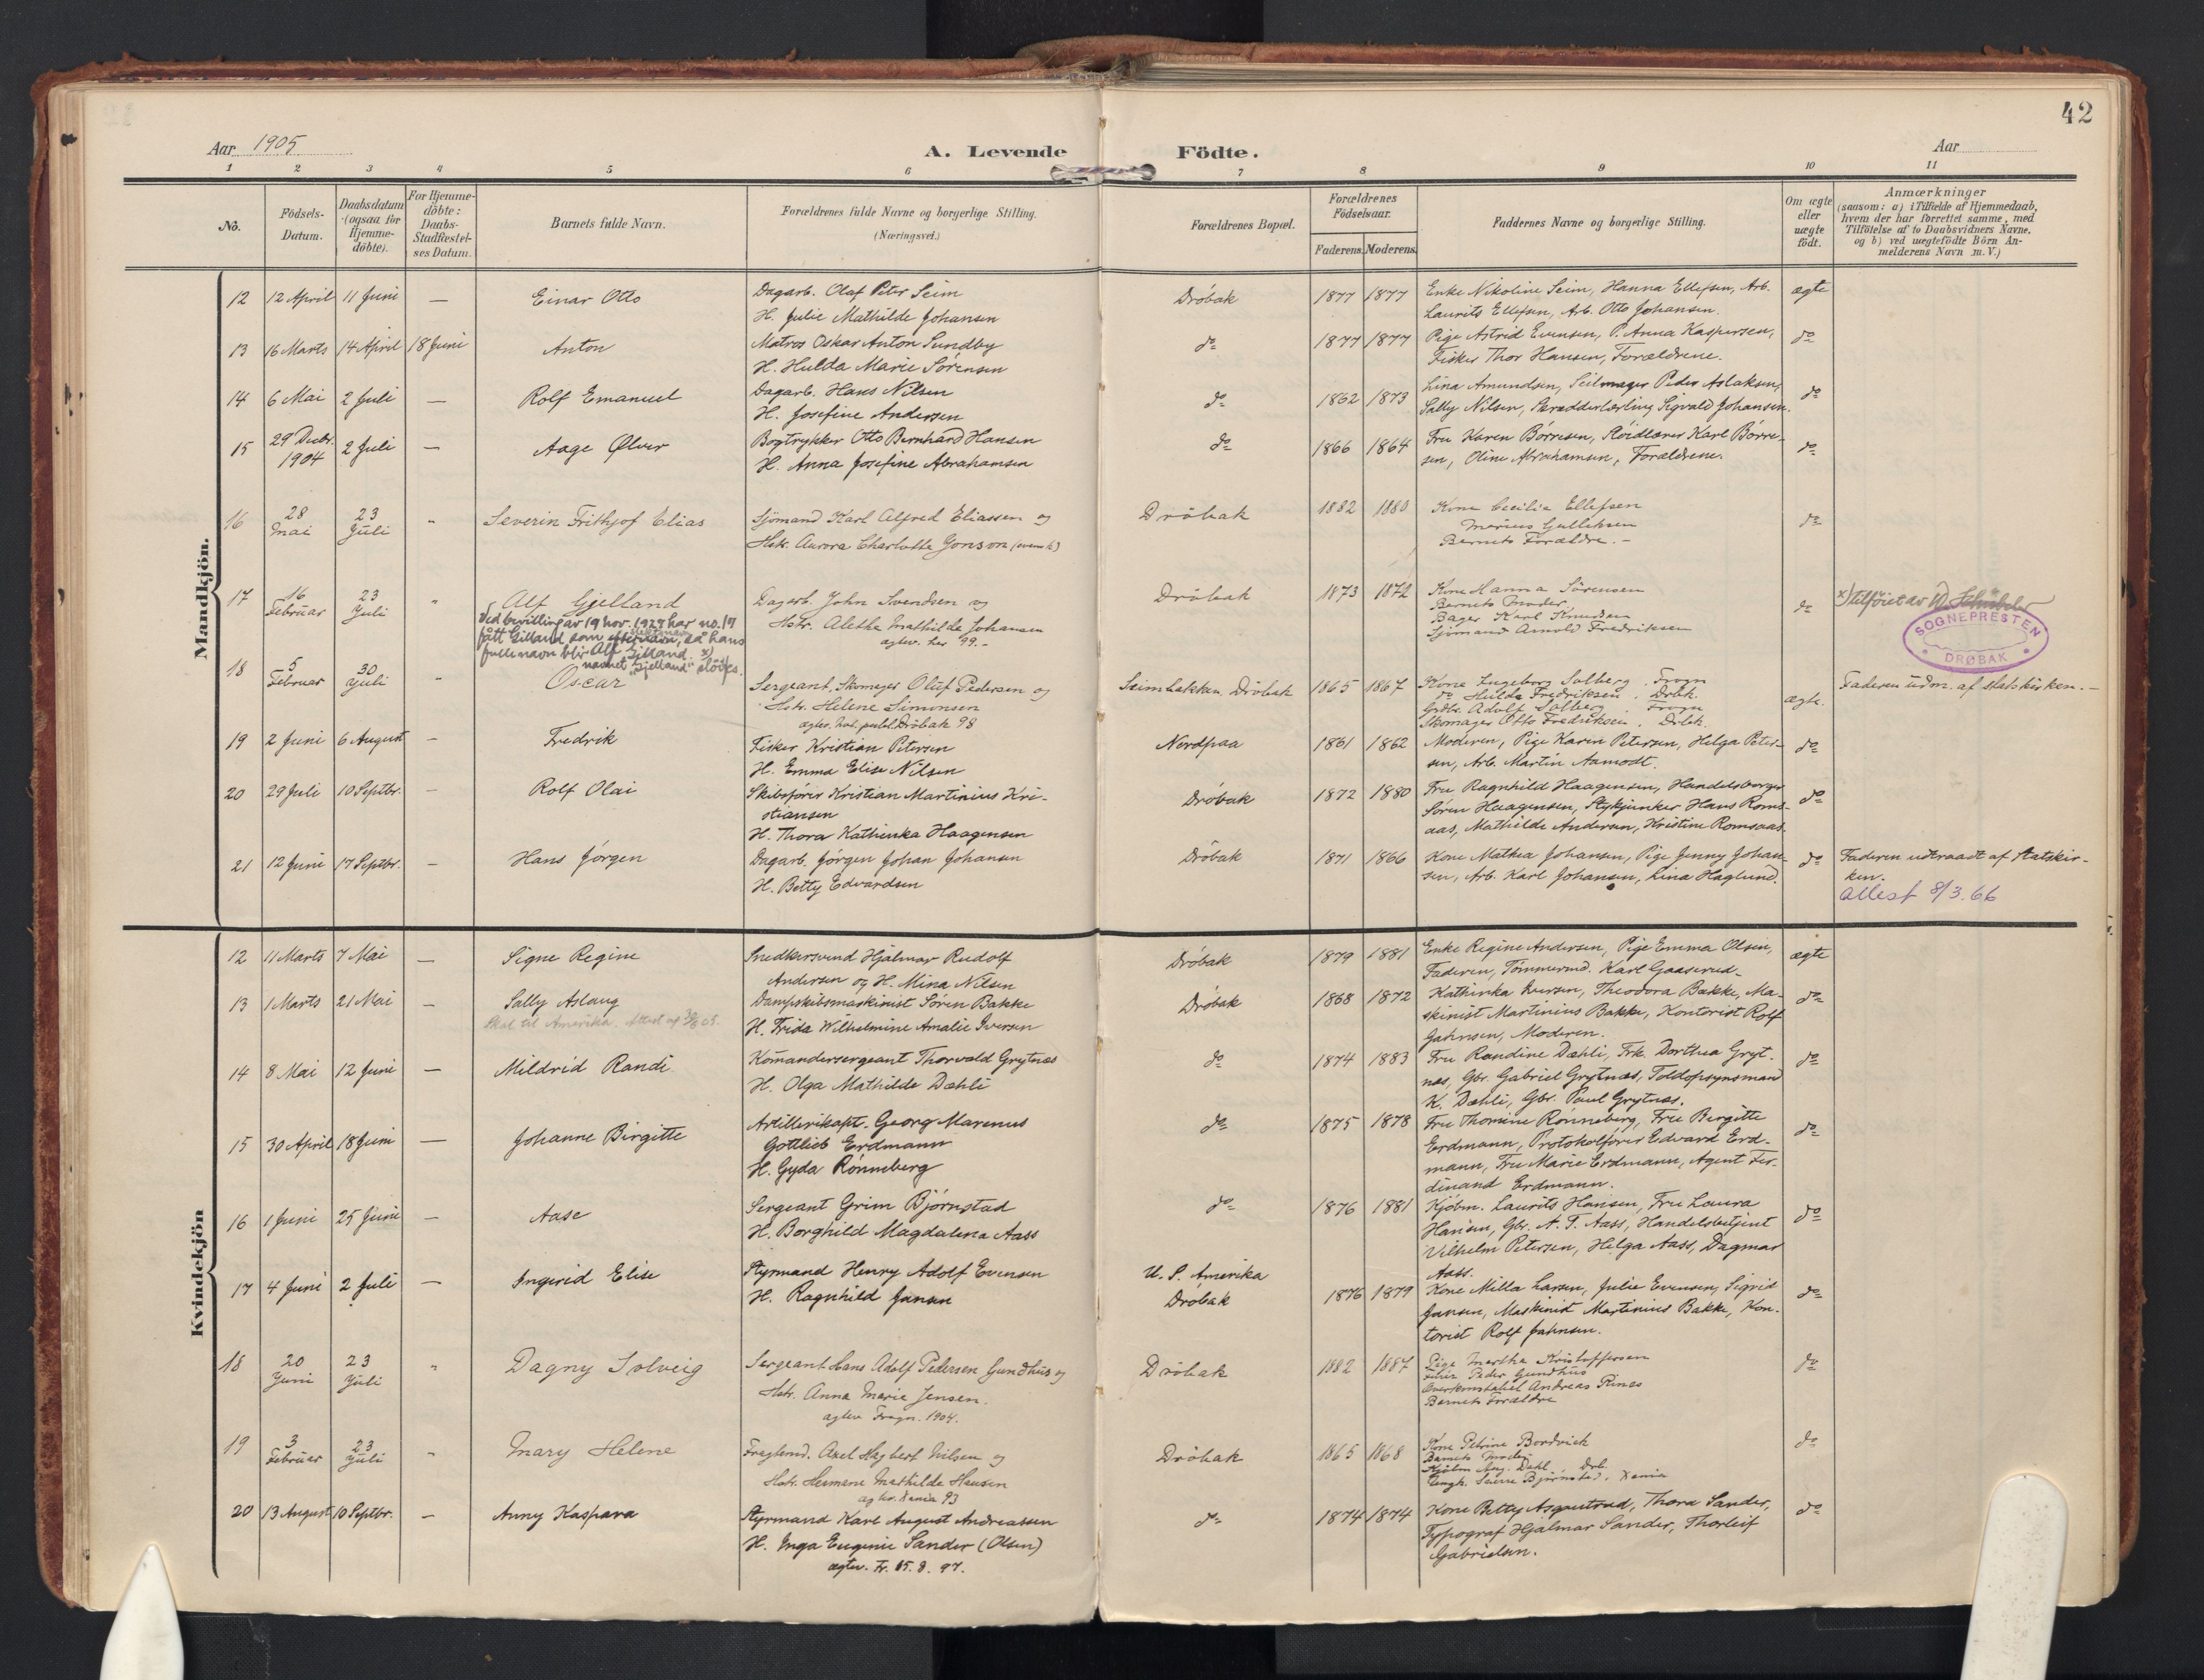 42
Aar 1905
A. Levende Födte.
Aar
1 2 3 4 5 6 7 8 9 10 11
No.
Födsels-Datum.
Daabsdatum (ogsaa for Hjemme-döbte).
For Hjemme-döbte: Daabs-Stadfæstel-ses Datum.
Barnets fulde Navn.
Forældrenes fulde Navne og borgerlige Stilling.
(Næringsvei.)
Forældrenes Bopæl.
Forældrenes Födselsaar.
Faderens. Moderens.
Faddernes Navne og borgerlige Stilling.
Om ægte eller uægte födt.
Anmærkninger
(saasom: a) i Tilfælde af Hjemmedaab,
hvem der har forrettet samme, med
Tilföielse af to Daabsvidners Navne,
og b) ved uægtefödte Börn An-
melderens Navn m. V.)
Mandkjön.
12 12 April 11 Juni — Einar Otto
Dagarb. Olaf Peter Seim
H. Julie Mathilde Johansen
Dröbak 1877 1877
Enke Nikoline Seim, Hanna Ellefsen, Arb.
Laurits Ellefsen, Arb. Otto Johansen.
ægte
13 16 Marts 14 April 18 Juni Anton
Matros Oskar Anton Sundby
H. Hulda Marie Sörensen
do 1877 1877
Pige Astrid Evensen, P. Anna Kaspersen,
Fisker Thor Hansen, Forældrene.
do
14 6 Mai 2 Juli — Rolf Emanuel
Dagarb. Hans Nilsen
H. Josefine Andersen
do 1862 1873
Lina Amundsen, Seilmager Peder Aslaksen,
Sally Nilsen, Skrædderlærling Sigvald Johansen.
do
15 29 Decbr. 1904 2 Juli — Aage Ølver
Bogtrykker Otto Bernhard Hansen
H. Anna Josefine Abrahamsen
do 1866 1864
Fru Karen Börresen, Slöidlærer Karl Börre-
sen, Oline Abrahamsen, Forældrene.
do
16 28 Mai 23 Juli " Severin Frithjof Elias
Sjömand Karl Alfred Eliassen og
Hstr. Aurora Charlotte Jonson (svensk)
Dröbak 1882 1880
Kone Cecilie Ellefsen
Marius Gulliksen
Barnets Forældre. -
do
17 16 Februar 23 Juli " Alf Gjelland
Ved bevilling av 19 nov. 1927 har no. 17
fått Gilland som slektsnavn, så hans
fulle navn blir Alf Gilland. x)
navnet "Gjelland" slöifes.
Dagarb. John Svendsen og
Hstr. Alethe Mathilde Johansen
agtev. her 99.-
Dröbak 1873 1872
Kone Hanna Sörensen
Barnets Moder
Bager Karl Knudsen
Sjömand Arnold Fredriksen
do
x) tilföiet av W. Schübeler
SOGNEPRESTEN
DRØBAK
18 5 Februar 30 Juli " Oscar
Sergeant, Skomager Oluf Pedersen og
Hstr. Helene Simonsen
Seimbakken Dröbak 1865 1867
Kone Ingeborg Solberg. Frogn
do Hulda Fredriksen. Dröbk.
Grdbr. Adolf Solberg. Frogn
Skomager Otto Fredriksen. Dröbk.
ægte.
Faderen udm. af statskirken. -
19 2 Juni 6 August — Fredrik
Fisker Kristian Petersen
H. Emma Elise Nilsen
Nordpaa 1861 1862
Moderen, Pige Karin Petersen, Helga Peter-
sen, Arb. Martin Aamodt.
do
20 29 Juli 10 Septbr. — Rolf Olai
Skibsförer Kristian Martinius Kri-
stiansen
H. Thora Kathinka Haagensen
Dröbak 1872 1880
Fru Ragnhild Haagensen, Handelsborger
Sören Haagensen, Stykjunker Hans Roms-
aas, Mathilde Andersen, Kristine Romsaas.
do
21 12 Juni 17 Septbr. — Hans Jörgen
Dagarb. Jörgen Johan Johansen
H. Betty Edvardsen
Dröbak 1871 1866
Kone Mathea Johansen, Pige Jenny Johan-
sen, Arb. Karl Johansen, Lina Haglund.
do
Faderen udtraadt af Statskir-
ken.
Attest 8/3.66
Kvindekjön
12 11 Marts 7 Mai — Signe Regine
Snedkersvend Hjalmar Rudolf
Andersen og H. Mina Nilsen
Dröbak 1879 1881
Enke Regine Andersen, Pige Emma Olsen,
Faderen, Tömmermd. Karl Gaaserud.
ægte
13 1 Marts 21 Mai — Sally Aslaug
Skal til Amerika. Attest
Dampskibsmaskinist Sören Bakke
H. Frida Wilhelmine Amalie Iversen
Dröbak 1868 1872
Kathinka Iversen, Theodora Bakke, Ma-
skinist Martinius Bakke, Kontorist Rolf
Jahnsen, Moderen.
do
14 8 Mai 12 Juni — Mildrid Randi
Komandersergeant Thorvald Grytnæs
H. Olga Mathilde Dæhli
do 1874 1883
Fru Randine Dæhli, Frk. Dorthea Gryt-
næs, Gbr. Gabriel Grytnæs, Toldopsynsmand
K. Dæhli, Gbr. Paul Grytnæs.
do
15 30 April 18 Juni — Johanne Birgitte
Artillerikapt. Georg Marenus
Gottlieb Erdmann
H. Gyda Rönneberg
do 1875 1878
Fru Thomine Rönneberg, Fru Birgitte
Erdmann, Protokolförer Edvard Erd-
mann, Fru Marie Erdmann, Agent Fer-
dinand Erdmann.
do
16 1 Juni 25 Juni — Aase
Sergeant Grim Björnstad
H. Borghild Magdalena Aass
do 1876 1881
Kjöbm. Laurits Hansen, Fru Laura
Hansen, Gbr. A. T. Aass, Handelsbetjent
Vilhelm Petersen, Helga Aass, Dagmar
Aass.
do
17 4 Juni 2 Juli — Ingerid Elise
Styrmand Henry Adolf Evensen
H. Ragnhild Jansen
U. S. Amerika
Dröbak 1876 1879
Kone Milla Larsen, Julie Evensen, Sigrid
Jansen, Maskinist Martinius Bakke, Kon-
torist Rolf Jahnsen.
do
18 20 Juni 23 Juli " Dagny Solveig
Sergeant Hans Adolf Pedersen Gundhus og
Hstr. Anna Marie Jensen.
agtev Frogn. 1904.
Dröbak 1882 1887
Pige Marthe Kristoffersen
Peder Gundhus
Overkonstabel Andreas Rines
Barnets Forældre
do
19 3 Februar 23 Juli " Mary Helene
Axel Hagbert Nilsen og
Hstr. Hermene Mathilde Hansen
Dröbak 1865 1868
Kone Petrine Bordvick
Barnets Moder
do
20 13 August 10 Septbr. — Anny Kaspara
Styrmand Karl August Andreassen
H. Inga Eugenie Sander (Olsen)
ægtev. Fr. 15. 8. 97.
do 1874 1874
Kone Betty Asgautrud, Thora Sander,
Typograf Hjalmar Sander, Thorleif
Gabrielsen.
do